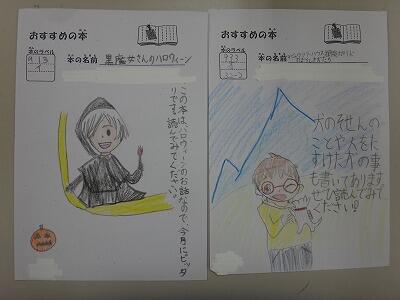 おすすめの本
本のラベル
913
イ
本の名前 黒魔女さんのハロウィーン
この本はハロウィーンのお話なので、今月にピッタ
リです。読んでみてください。
おすすめの本
本のラベル
933
本の名前
犬のそせんの
ことや人をた
すけた犬の事
も書いてあります。
ぜひ読んでみて
ください!!